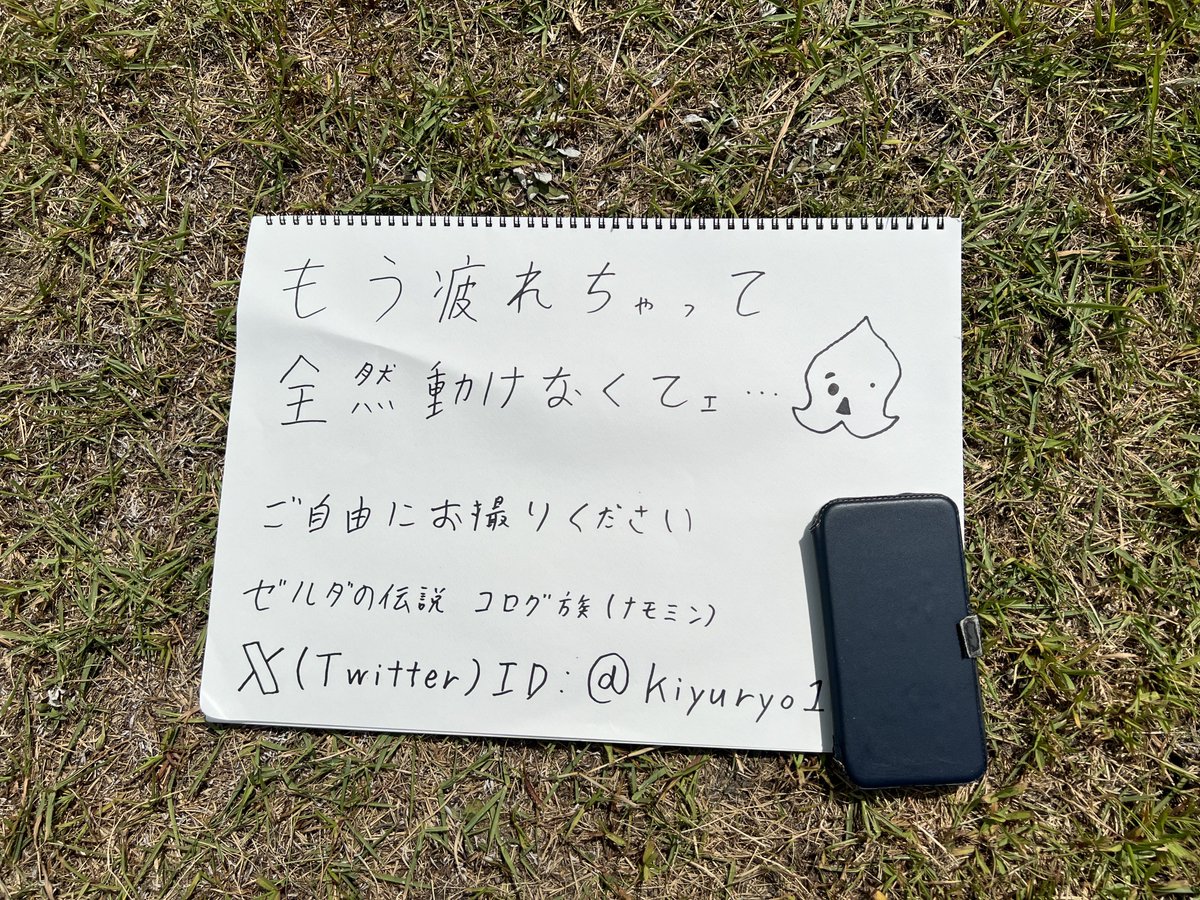 もう疲れちゃって
全然動けなくてェ…
ご自由にお撮りください
ゼルダの伝説 コログ族(ナモミン)
X(Twitter)ID:@kiyuryo1